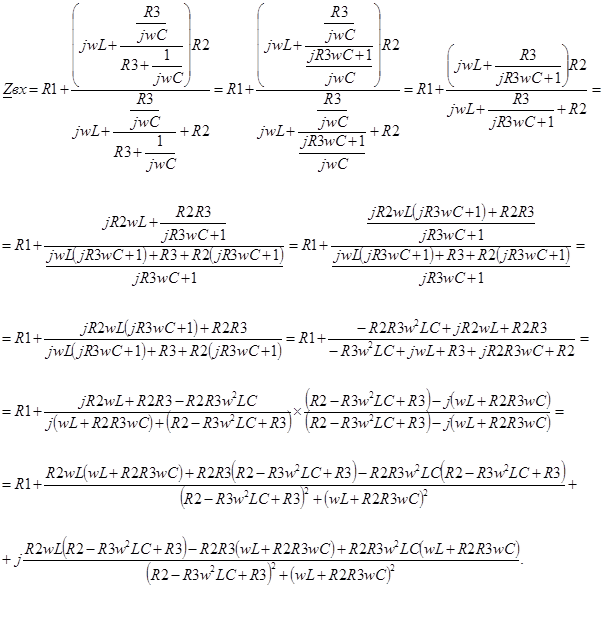 Zвх = R1 + ((jwL + (R3/jwC)/(R3 + 1/jwC))R2)/(jwL + (R3/jwC)/(R3 + 1/jwC) + R2) = R1 + ((jwL + (R3/jwC)/((jR3wC + 1)/jwC))R2)/(jwL + (R3/jwC)/((jR3wC + 1)/jwC) + R2) = R1 + ((jwL + R3/(jR3wC + 1))R2)/(jwL + R3/(jR3wC + 1) + R2) =
= R1 + (jR2wL + R2R3/(jR3wC + 1))/((jwL(jR3wC + 1) + R3 + R2(jR3wC + 1))/(jR3wC + 1)) = R1 + ((jR2wL(jR3wC + 1) + R2R3)/(jR3wC + 1))/((jwL(jR3wC + 1) + R3 + R2(jR3wC + 1))/(jR3wC + 1)) =
= R1 + (jR2wL(jR3wC + 1) + R2R3)/(jwL(jR3wC + 1) + R3 + R2(jR3wC + 1)) = R1 + (−R2R3w²LC + jR2wL + R2R3)/(−R3w²LC + jwL + R3 + jR2R3wC + R2) =
= R1 + (jR2wL + R2R3 − R2R3w²LC)/(j(wL + R2R3wC) + (R2 − R3w²LC + R3)) × ((R2 − R3w²LC + R3) − j(wL + R2R3wC))/((R2 − R3w²LC + R3) − j(wL + R2R3wC)) =
= R1 + (R2wL(wL + R2R3wC) + R2R3(R2 − R3w²LC + R3) − R2R3w²LC(R2 − R3w²LC + R3))/((R2 − R3w²LC + R3)² + (wL + R2R3wC)²) +
+ j(R2wL(R2 − R3w²LC + R3) − R2R3(wL + R2R3wC) + R2R3w²LC(wL + R2R3wC))/((R2 − R3w²LC + R3)² + (wL + R2R3wC)²).